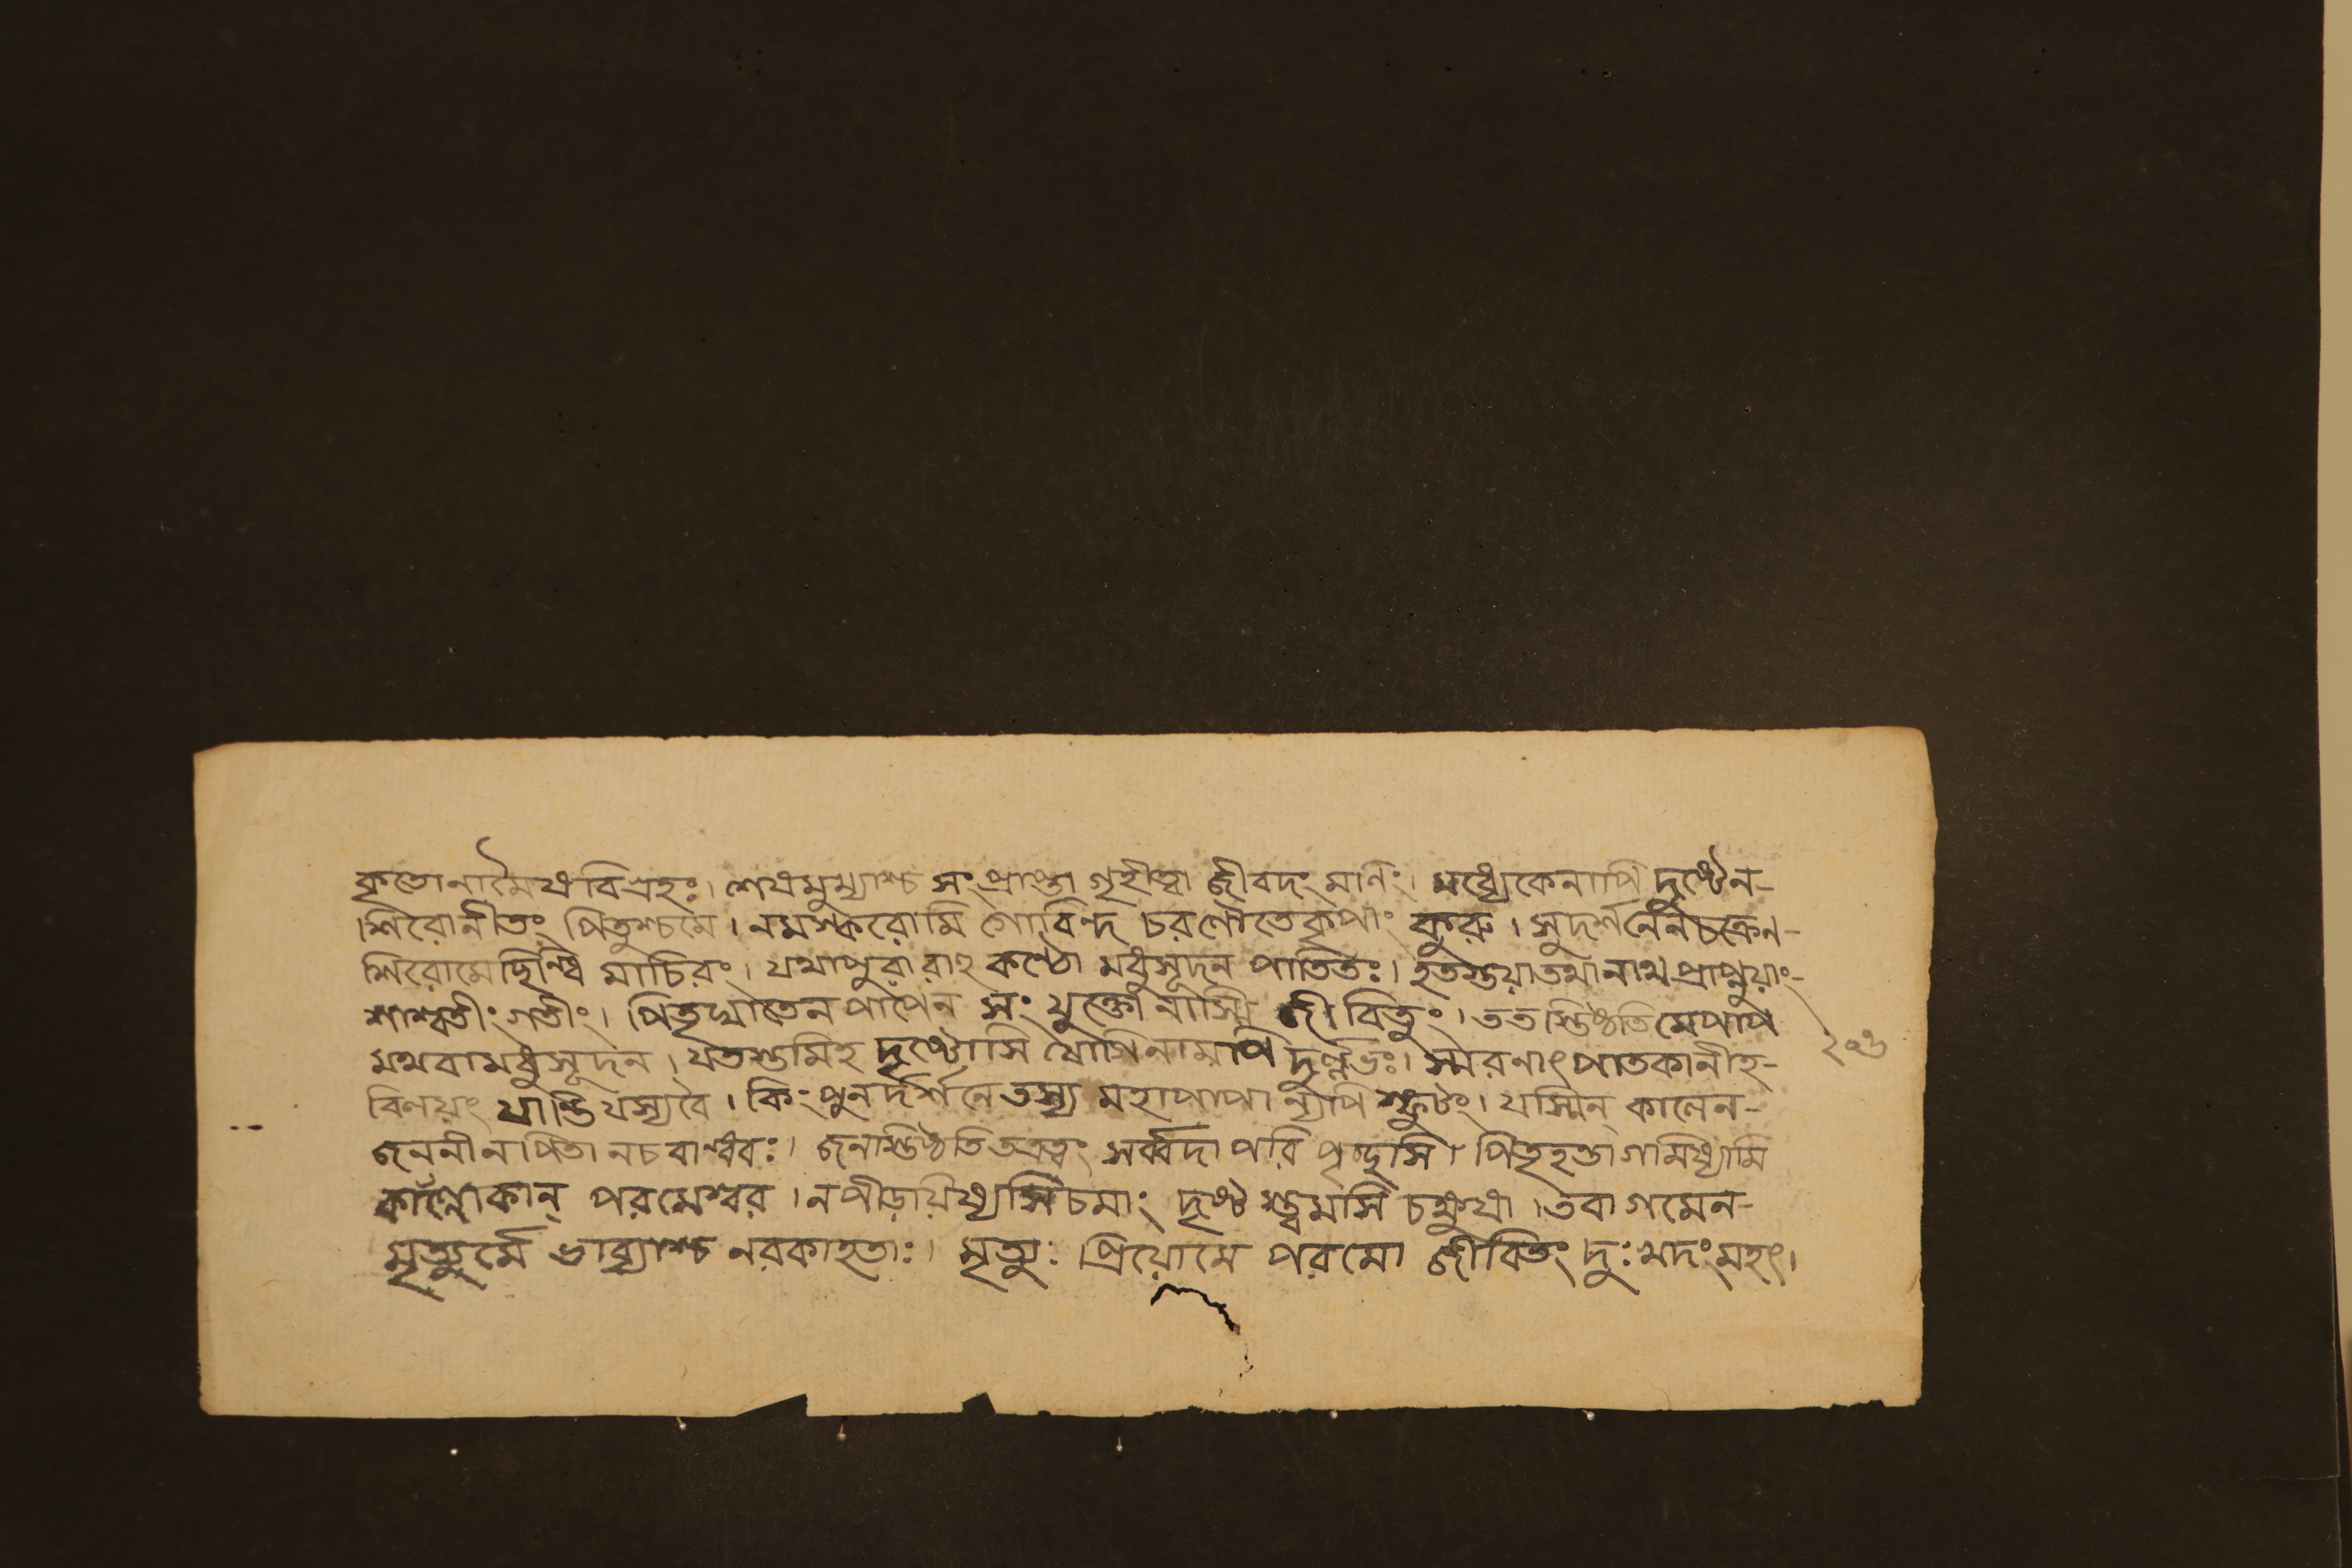 কৃতোনামৈষবিগ্রহঃ। শেষমুখ্যাশ্চ সংপ্রাপ্তা গৃহীত্বা জীবদং মাণিং। মধ্যেকেনাপি দুষ্টেন-
।শিরোনীতং পিতুশ্চমে। নমস্করোমি গোবিন্দ চরণৌতেকৃপাং কুরু। সুদর্শনেনচক্রেন-
শিরোমেছিন্ধি মাচিরং। যথাপুরা রাহু কণ্ঠো মধুসূদন পাতিতঃ। হতস্ত্বয়াতথানাথপ্রাপ্নুয়াং-
শাশ্বতীং গতীং। পিতৃঘাতেন পাপেন সং যুক্তো নাস্মি জীবিতুং। ততস্তিষ্ঠতি মেপাপ
মথবামধুসূদন। যতস্ত্বমিহ দৃষ্টোসি যোগিনামপি দুর্ল্লভঃ। স্মরনাৎ পাতকানীহ-
বিলয়ং যান্তি যস্যবৈ। কিং পুনর্দর্শনেতস্য মহাপাপান্যপি স্ফুটং। যস্মিন্ কালেন-
জননীনপিতা নচবান্ধবঃ। জনাস্তিষ্ঠতিতত্রত্বং সর্ব্বদা পরি পৃচ্ছসি। পিতৃহন্তাগমিষ্যামি
কাঁল্লোকান্ পরমেশ্বর। নপীড়য়িষ্যসিচমাং দৃষ্ট স্ত্বমসি চক্ষুষা। তবাগমেন-
মৃত্যুর্মে ভাব্যাশ্চ নরকাহতাঃ। মৃত্যুঃ প্রিয়োমে পরমো জীবিতং দুঃখদংমহৎ।